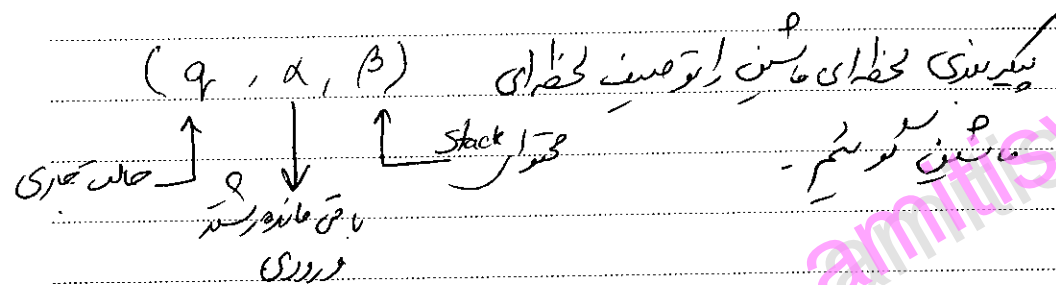 پیکربندی لحظه‌ای ماشین را توصیف لحظه‌ای (q, α, β)
ماشین گوئیم.
محتوای Stack
حالت جاری
باقی مانده رشته
ورودی
amitis